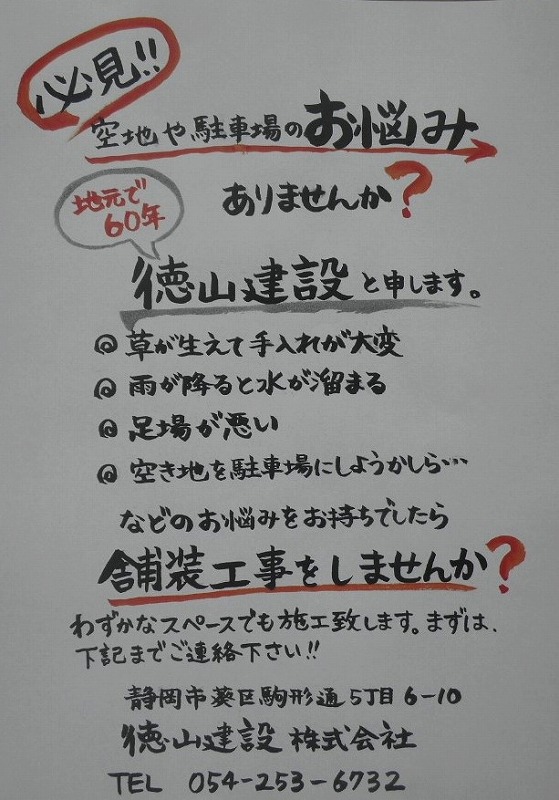 必見!!
空地や駐車場のお悩み
ありませんか?
地元で
60年
徳山建設と申します。
◎ 草が生えて手入れが大変
◎ 雨が降ると水が溜まる
◎ 足場が悪い
◎ 空き地を駐車場にしようかしら…
などのお悩みをお持ちでしたら
舗装工事をしませんか?
わずかなスペースでも施工致します。まずは、
下記までご連絡下さい!!
静岡市葵区駒形通5丁目6-10
徳山建設株式会社
TEL 054-253-6732